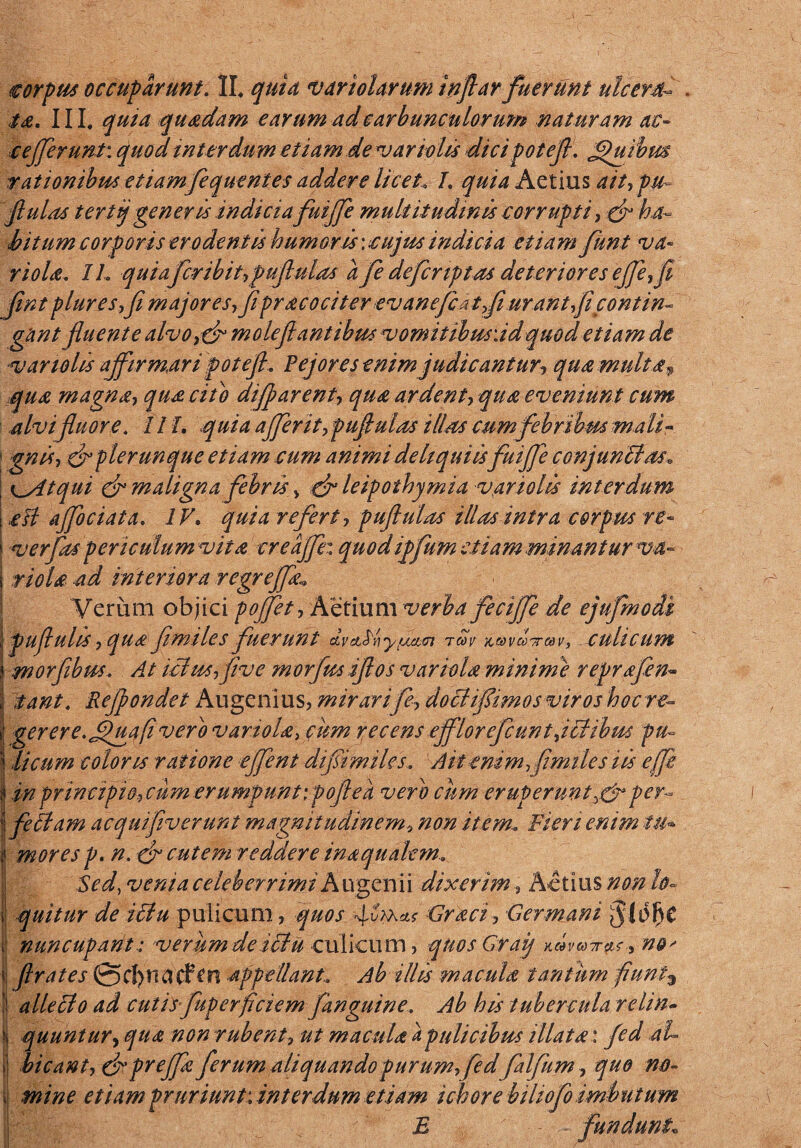 corpus occuparunt. II. quia variolarum instar fuerunt ulcera-
tæ. III. quia quædam earum ad carbunculorum naturam ac-
cesserunt: quod interdum etiam de variolis dici potest. Quibus
rationibus etiam sequentes addere licet. I. quia Aetius ait, pu-
stulas tertij generis indicia fuisse multitudinis corrupti, & ha-
bitum corporis erodentis humoris: cujus indicia etiam sunt va-
riolæ. II. quia scribit, pustulas à se descriptas deteriores esse, si
sint plures, si majores, si præcociter evanescat, si urant, si contin-
gant fluente alvo, & molestantibus vomitibus: id quod etiam de
variolis affirmari potest. Pejores enim judicantur, quæ multæ,
quæ magnæ, quæ citò disparent, quæ ardent, quæ eveniunt cum
alvi fluore. III. quia asserit, pustulas illas cum febribus mali-
gnis, & plerunque etiam cum animi deliquiis fuisse conjunctas.
Atqui & maligna febris, & leipothymia variolis interdum
est associata. IV. quia refert, pustulas illas intra corpus re-
versas periculum vitæ creasse: quod ipsum etiam minantur va-
riolæ ad interiora regressæ.
Verùm objici posset, Aëtium verba fecisse de ejusmodi
pustulis, quæ similes fuerunt ἀναδήγμασι τῶν κωνώπων, culicum
morsibus. At ictus, sive morsus istos variolæ minimè repræsen-
tant. Respondet Augenius, mirari se, doctissimos viros hoc re-
gerere. Quasi verò variolæ, cùm recens efflorescunt, ictibus pu-
licum coloris ratione essent dissimiles. Ait enim, similes iis esse
in principio, cùm erumpunt: posteà verò cùm eruperunt, & per-
fectam acquisiverunt magnitudinem, non item. Fieri enim tu-
mores p. n. & cutem reddere inæqualem.
Sed, venia celeberrimi Augenii dixerim, Aëtius non lo-
quitur de ictu pulicum, quos ψύλλας Græci, Germani Flöhe
nuncupant: verùm de ictu culicum, quos Græij κώνωπας, no-
strates Schnacken appellant. Ab illis maculæ tantùm fiunt,
allecto ad cutis superficiem sanguine. Ab his tubercula relin-
quuntur, quæ non rubent, ut maculæ à pulicibus illatæ: sed al-
bicant, & pressa serum aliquando purum, sed salsum, quo no-
mine etiam pruriunt: interdum etiam ichore bilioso imbutum
E fundunt.